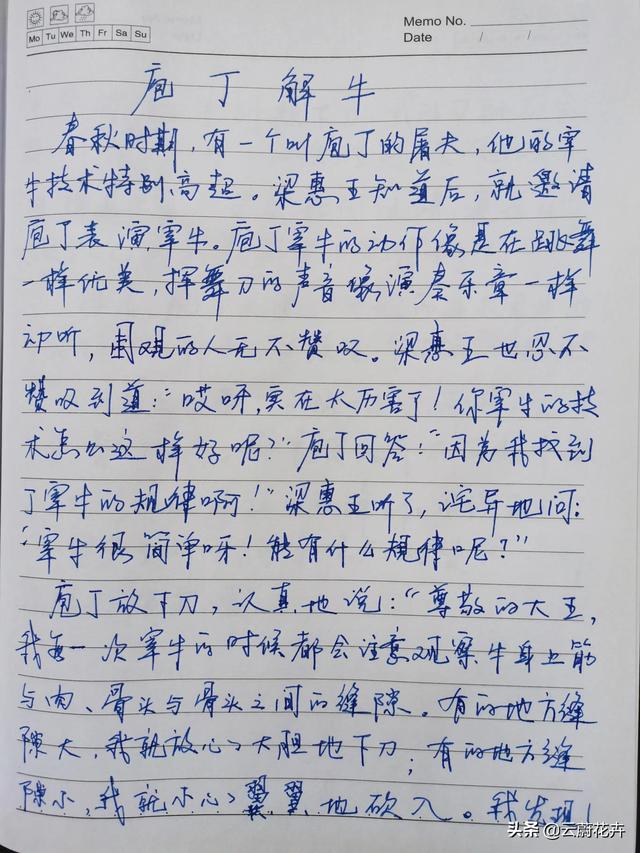 Memo No.
Mo Tu We Th Fr Sa Su
Date / /
庖丁解牛
春秋时期,有一个叫庖丁的屠夫,他的宰
牛技术特别高超。梁惠王知道后,就邀请
庖丁表演宰牛。庖丁宰牛的动作像是在跳舞
一样优美,挥舞刀的声音像演奏乐章一样
动听,围观的人无不赞叹。梁惠王也忍不
赞叹到道:“哎呀,实在太厉害了!你宰牛的技
术怎么这样好呢?”庖丁回答:“因为我找到
了宰牛的规律啊!”梁惠王听了,诧异地问:
“宰牛很简单呀!能有什么规律呢?”
庖丁放下刀,认真地说:“尊敬的大王,
我每一次宰牛的时候都会注意观察牛身上筋
与肉、骨头与骨头之间的缝隙。有的地方缝
隙大,我就放心大胆地下刀;有的地方缝
隙小,我就小心翼翼地砍入。我发现!
头条@云蔚花卉